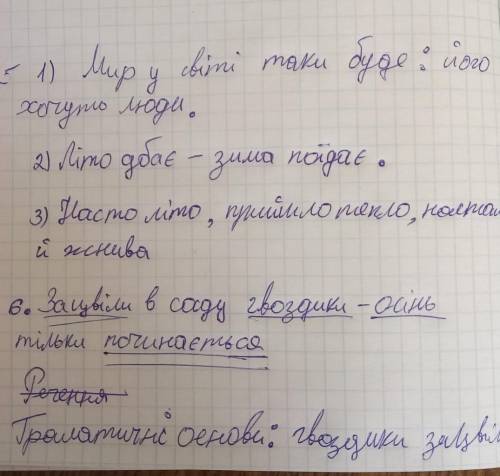 1) Мир у світі таки буде: його
хочуть люди.
2) Літо дбає – зима поїдає.
3) Насто літо, прийшло тепло, настал
й жнива
6. Зацвіли в саду гвоздики – осінь
тільки починається
Речення
Граматичні основи: гвоздики зацвіл